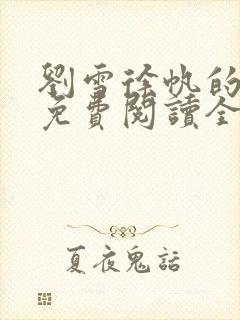 劉雪徐帆的
免費閱讀全
夏夜鬼話